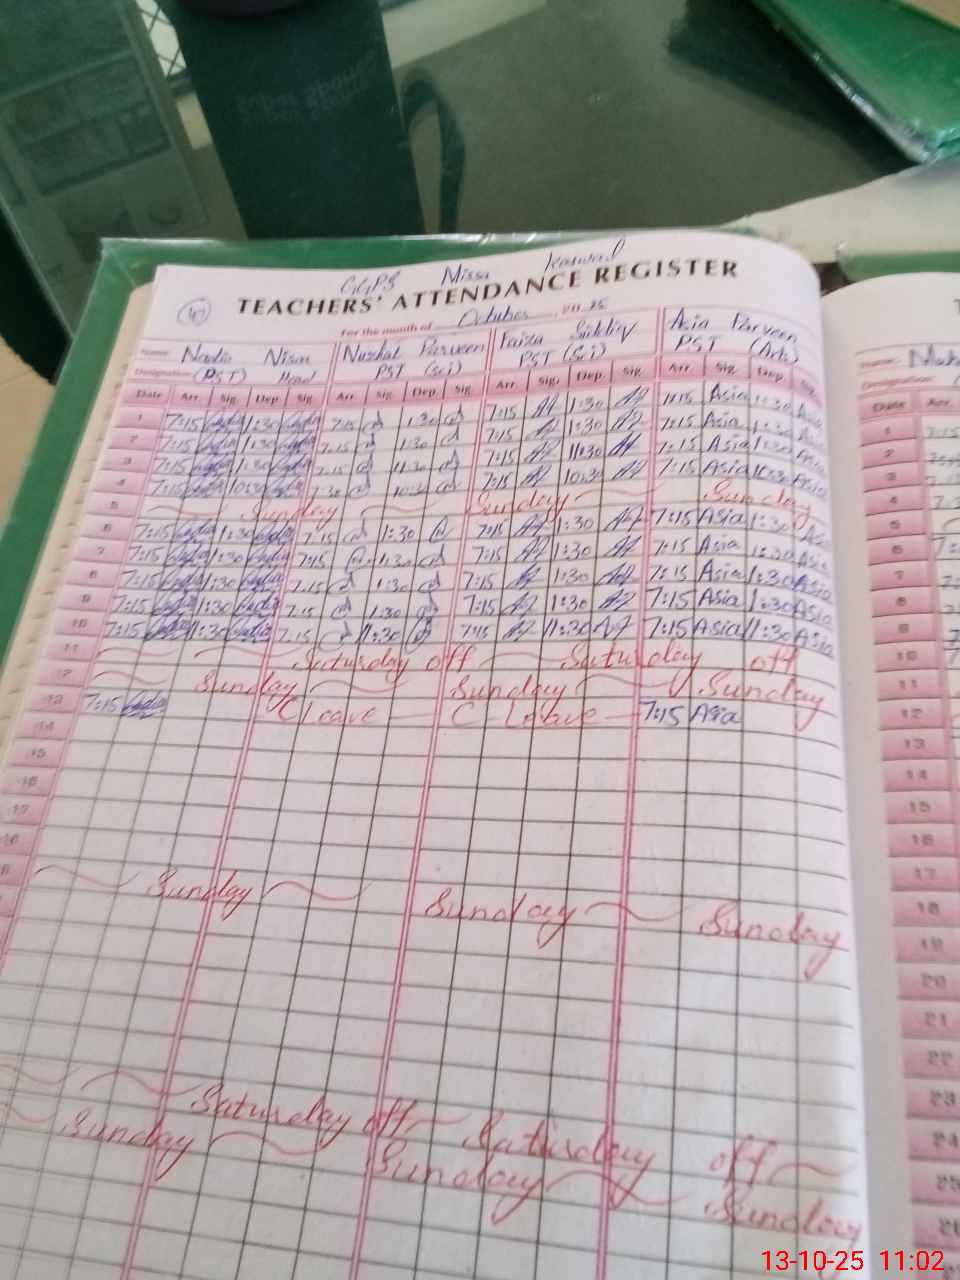 GGPS Missa Keswal
TEACHERS' ATTENDANCE REGISTER
47
For the month of October 2025
Name: Nadia Nisar Nuzhat Parveen Faiza Siddiq Asia Parveen
Designation: (PST) Head PST (Sci) PST (Sci) PST (Arts)
Date Arr. Sig. Dep. Sig. Arr. Sig. Dep. Sig. Arr. Sig. Dep. Sig. Arr. Sig. Dep. Sig.
1 7:15 1:30 7:15 1:30 7:15 1:30 7:15 Asia 1:30 Asia
2 7:15 1:30 7:15 1:30 7:15 1:30 7:15 Asia 1:30 Asia
3 7:15 1:30 7:15 11:30 7:15 11:30 7:15 Asia 1:30 Asia
4 7:15 10:30 7:30 10:30 7:15 10:30 7:15 Asia 10:30 Asia
5 Sunday Sunday Sunday
6 7:15 1:30 7:15 1:30 7:15 1:30 7:15 Asia 1:30 Asia
7 7:15 1:30 7:15 1:30 7:15 1:30 7:15 Asia 1:30 Asia
8 7:15 1:30 7:15 1:30 7:15 1:30 7:15 Asia 1:30 Asia
9 7:15 1:30 7:15 1:30 7:15 1:30 7:15 Asia 1:30 Asia
10 7:15 11:30 7:15 11:30 7:15 11:30 7:15 Asia 11:30 Asia
11 Saturday off Saturday off
12 Sunday Sunday Sunday
13 7:15 C leave C Leave 7:15 Asia
14
15
16
17
Sunday Sunday Sunday
Saturday off Saturday off
Sunday Sunday Sunday
Name:
Designation:
Date Arr.
1 7:15
2
3
4
5
6
7
8
9
10
11
12
13
14
15
16
17
18
19
20
21
22
23
24
25
26
13-10-25 11:02